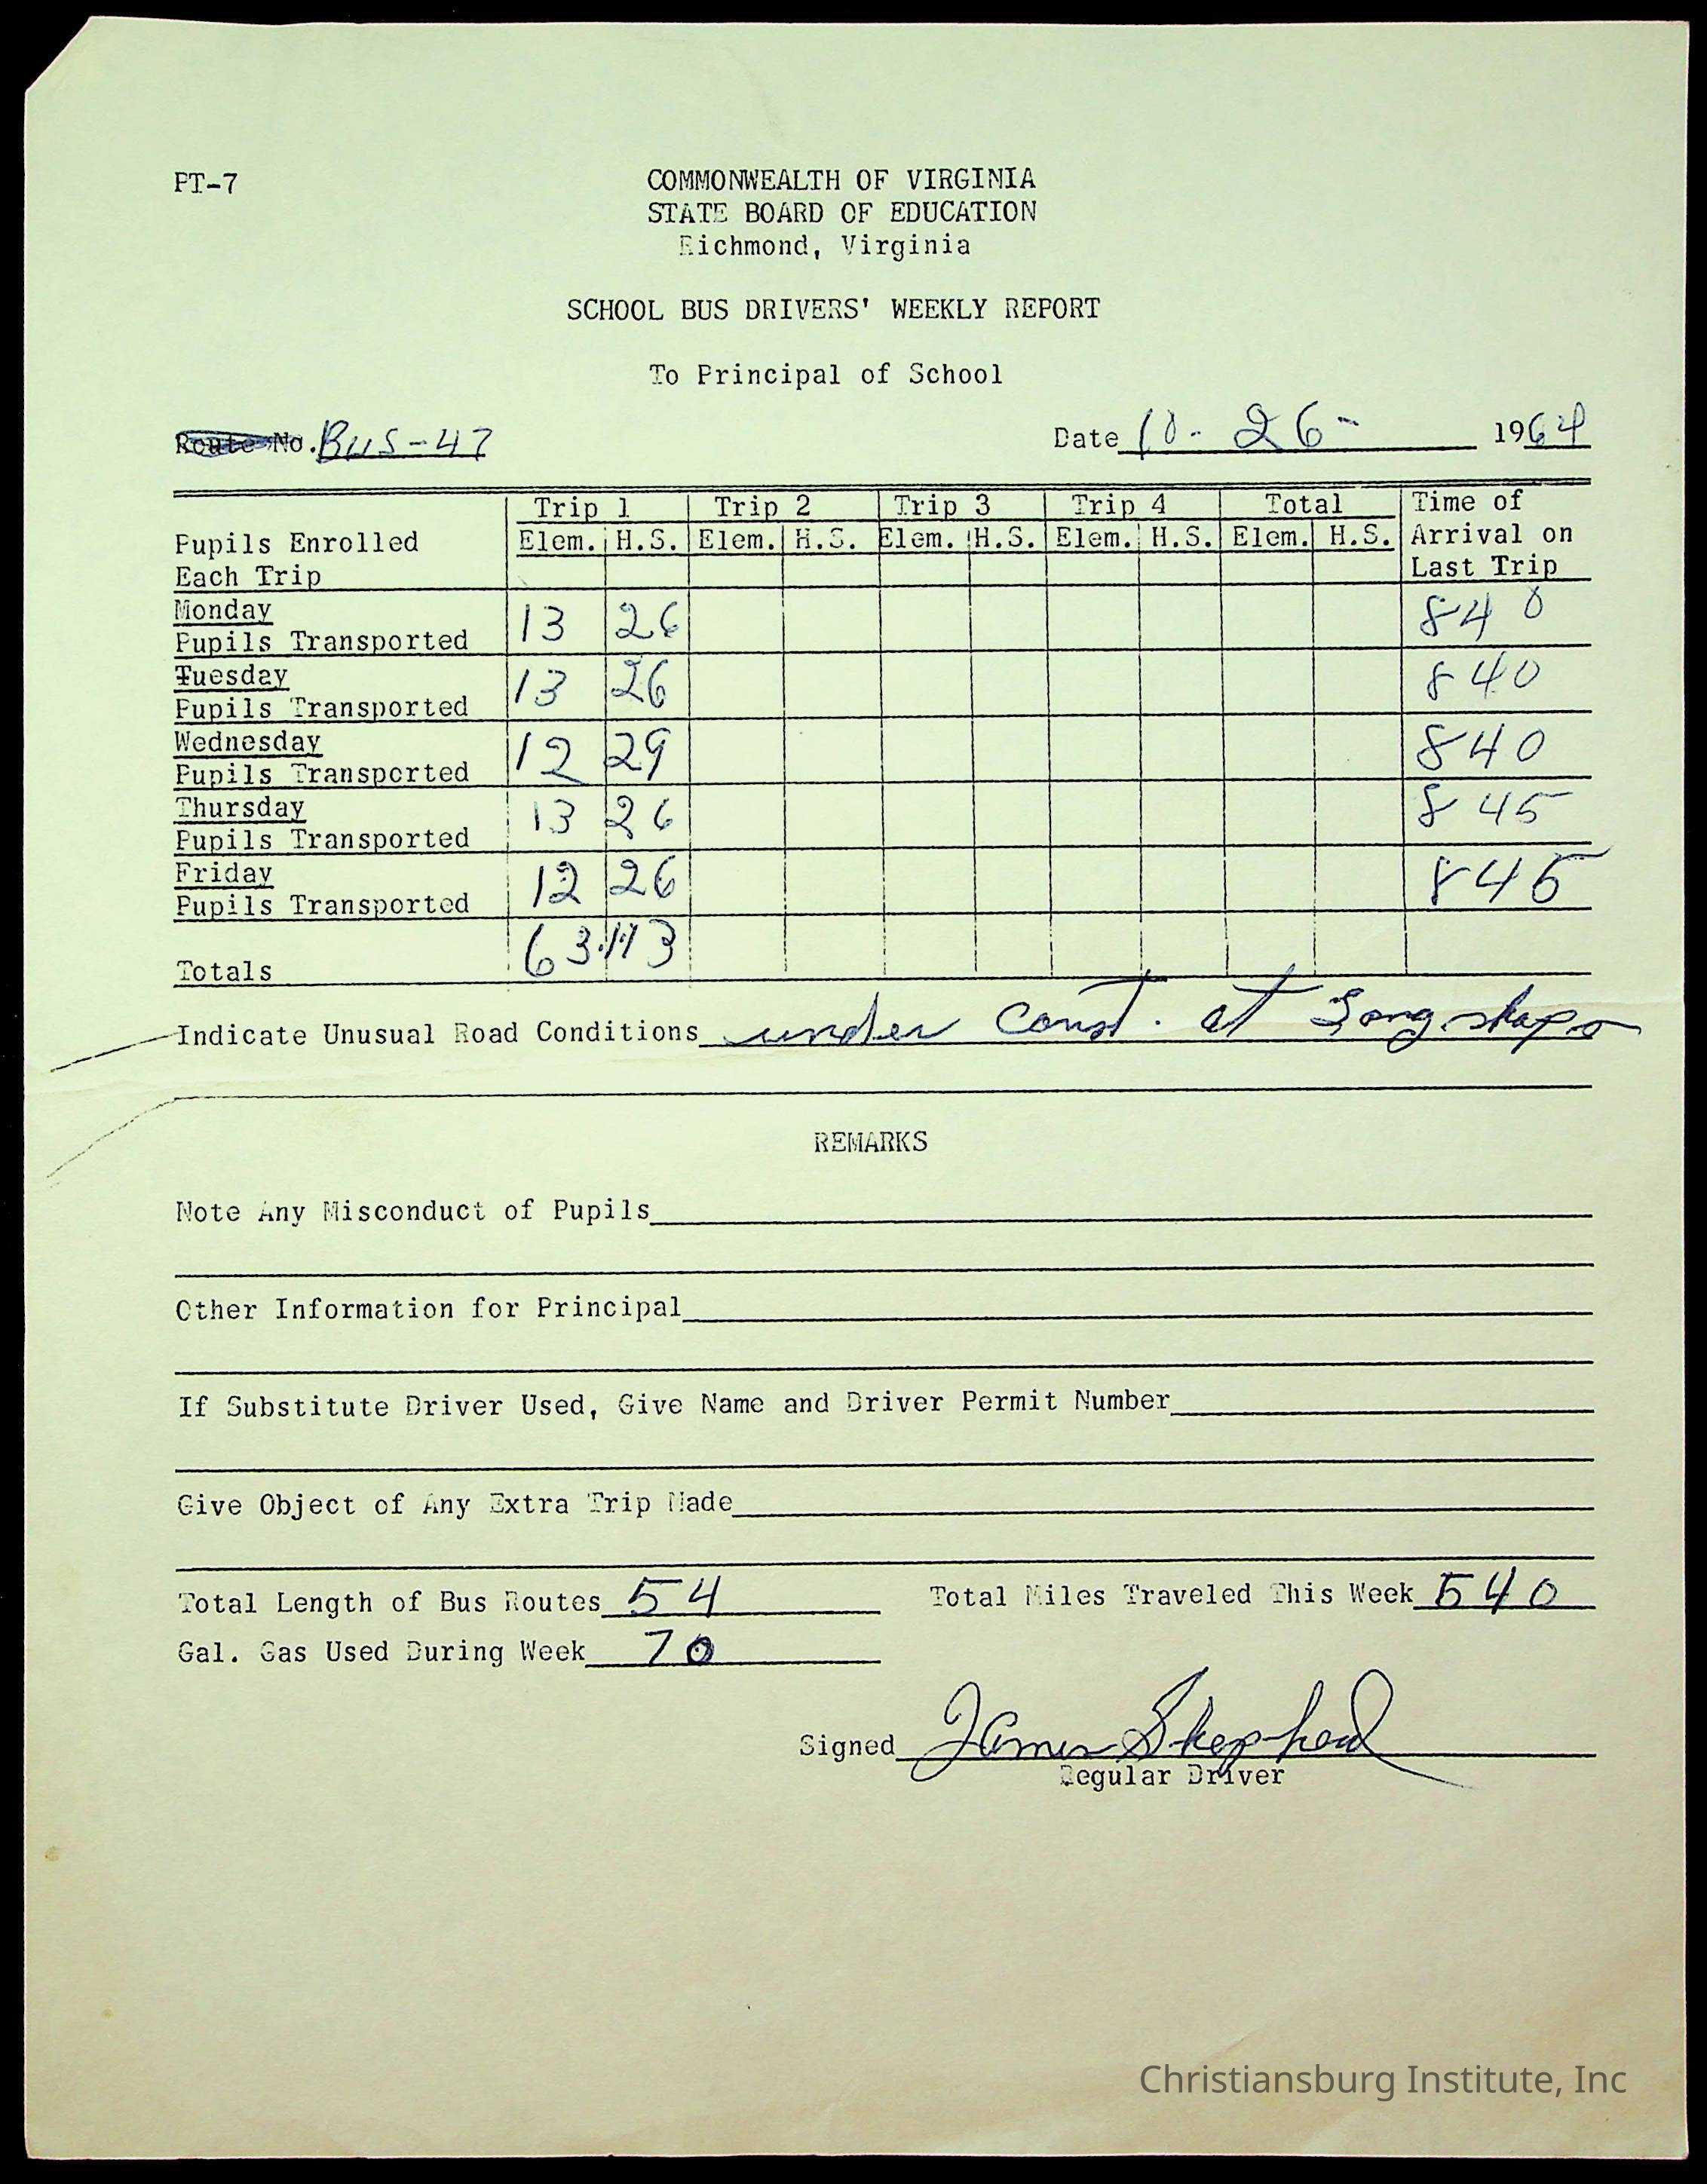 PT-7
COMMONWEALTH OF VIRGINIA
STATE BOARD OF EDUCATION
Richmond, Virginia
SCHOOL BUS DRIVERS' WEEKLY REPORT
To Principal of School
Route No. BUS-47 Date 10-26- 1964
Trip 1 Trip 2 Trip 3 Trip 4 Total Time of
Pupils Enrolled Elem. H.S. Elem. H.S. Elem. H.S. Elem. H.S. Elem. H.S. Arrival on
Each Trip Last Trip
Monday
Pupils Transported 13 26 840
Tuesday
Pupils Transported 13 26 840
Wednesday
Pupils Transported 12 29 840
Thursday
Pupils Transported 13 26 845
Friday
Pupils Transported 12 26 845
Totals 63 113
Indicate Unusual Road Conditions under Const. at
REMARKS
Note Any Misconduct of Pupils
Other Information for Principal
If Substitute Driver Used, Give Name and Driver Permit Number
Give Object of Any Extra Trip Made
Total Length of Bus Routes 54 Total Miles Traveled This Week 540
Gal. Gas Used During Week 70
Signed James Shepherd
Regular Driver
Christiansburg Institute, Inc